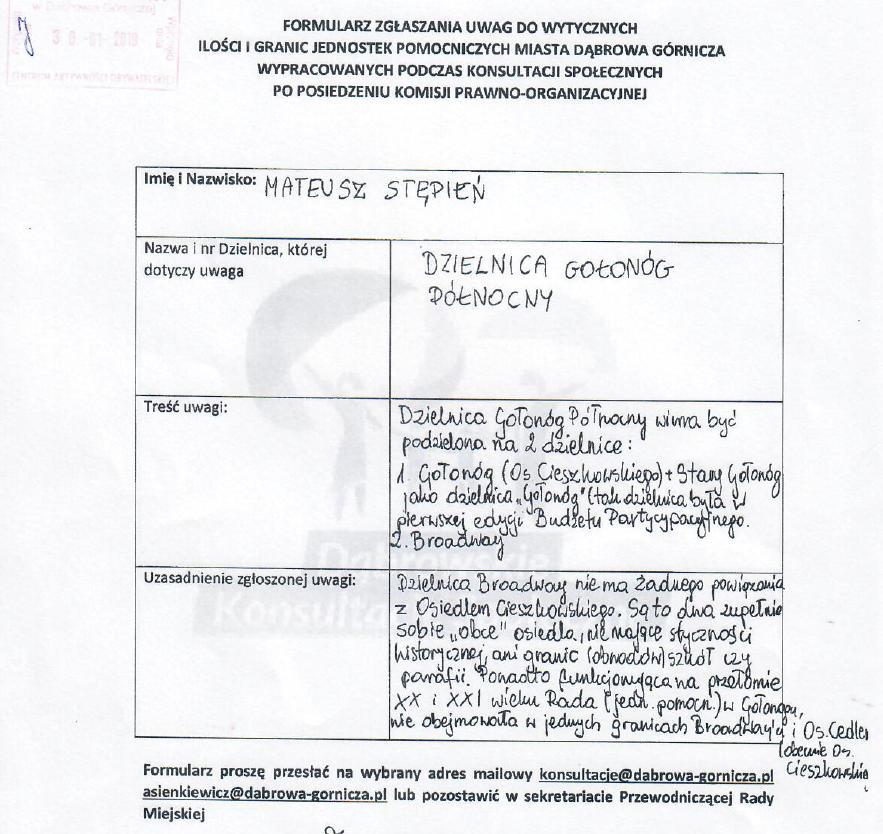 w Dąbrowie Górniczej
30 -01- 2019
CENTRUM AKTYWNOŚCI OBYWATELSKIEJ
FORMULARZ ZGŁASZANIA UWAG DO WYTYCZNYCH
ILOŚCI I GRANIC JEDNOSTEK POMOCNICZYCH MIASTA DĄBROWA GÓRNICZA
WYPRACOWANYCH PODCZAS KONSULTACJI SPOŁECZNYCH
PO POSIEDZENIU KOMISJI PRAWNO-ORGANIZACYJNEJ
Imię i Nazwisko: MATEUSZ STĘPIEŃ
Nazwa i nr Dzielnica, której
dotyczy uwaga
DZIELNICA GOŁONÓG
PÓŁNOCNY
Treść uwagi:
Dzielnica Gołonóg Północny winna być
podzielona na 2 dzielnice:
1. Gołonóg (Os Cieszkowskiego) + Stary Gołonóg
jako dzielnica „Gołonóg" (tak dzielnica była w
pierwszej edycji Budżetu Partycypacyjnego.
2. Broadway
Uzasadnienie zgłoszonej uwagi:
Dzielnica Broadway nie ma żadnego powiązania
z Osiedlem Cieszkowskiego. Są to dwa zupełnie
sobie „obce" osiedla, nie mające styczności
historycznej, ani granic (obwodów) szkół czy
parafii. Ponadto funkcjonująca na przełomie
XX i XXI wieku Rada (jedn. pomocn.) w Gołonogu,
nie obejmowała w jednych granicach Broadway'u i Os. Cedler
(obecnie Os.
Cieszkowskie
Dąbrowskie
Konsultacje
Formularz proszę przesłać na wybrany adres mailowy konsultacje@dabrowa-gornicza.pl
asienkiewicz@dabrowa-gornicza.pl lub pozostawić w sekretariacie Przewodniczącej Rady
Miejskiej